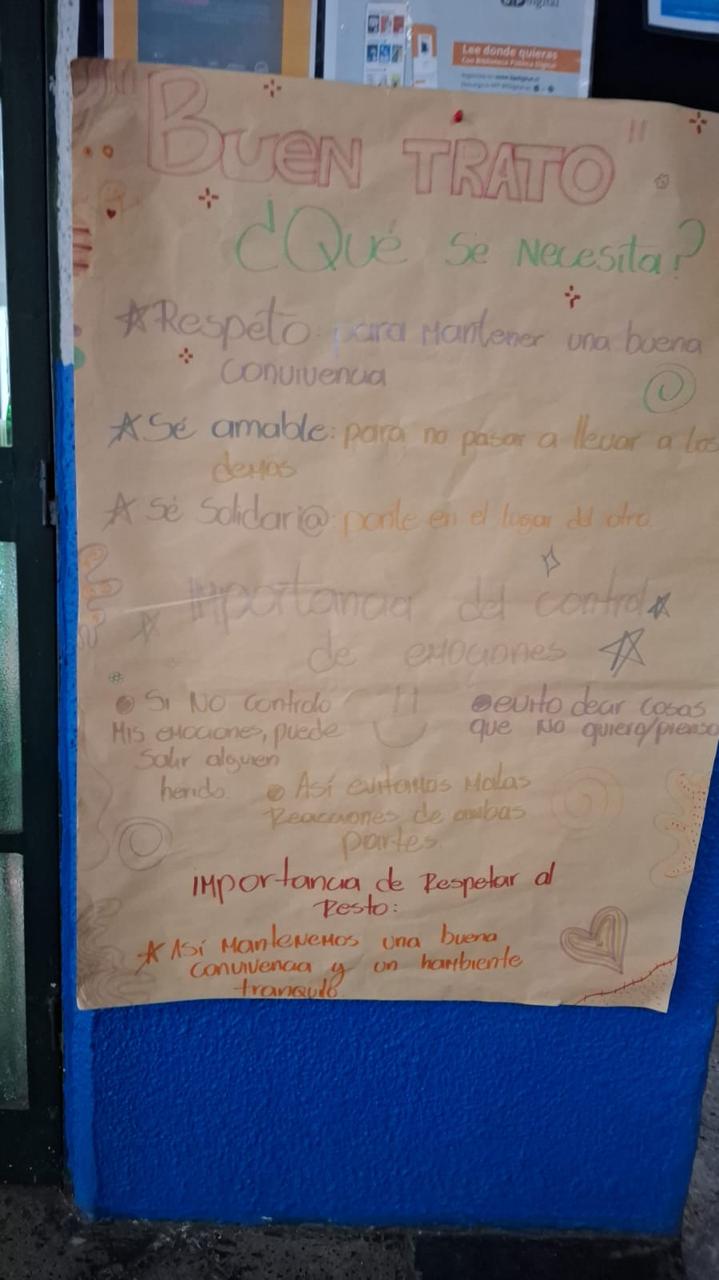 Digital
Lee donde quieras
Con Biblioteca Pública Digital
"BUEN TRATO"
¿Qué se Necesita?
Respeto: para mantener una buena
convivencia
Sé amable: para no pasar a llevar a los
demas
Sé Solidari@: ponte en el lugar del otro.
Importancia del control
de emociones
Si NO controlo
Mis emociones, puede
Salir alguien
herido.
evito dear cosas
que NO quiero/pienso
Así evitamos Malas
Reacciones de ambas
partes.
Importancia de Respetar al
Resto:
Así Mantenemos una buena
convivencia y un hambiente
tranquilo